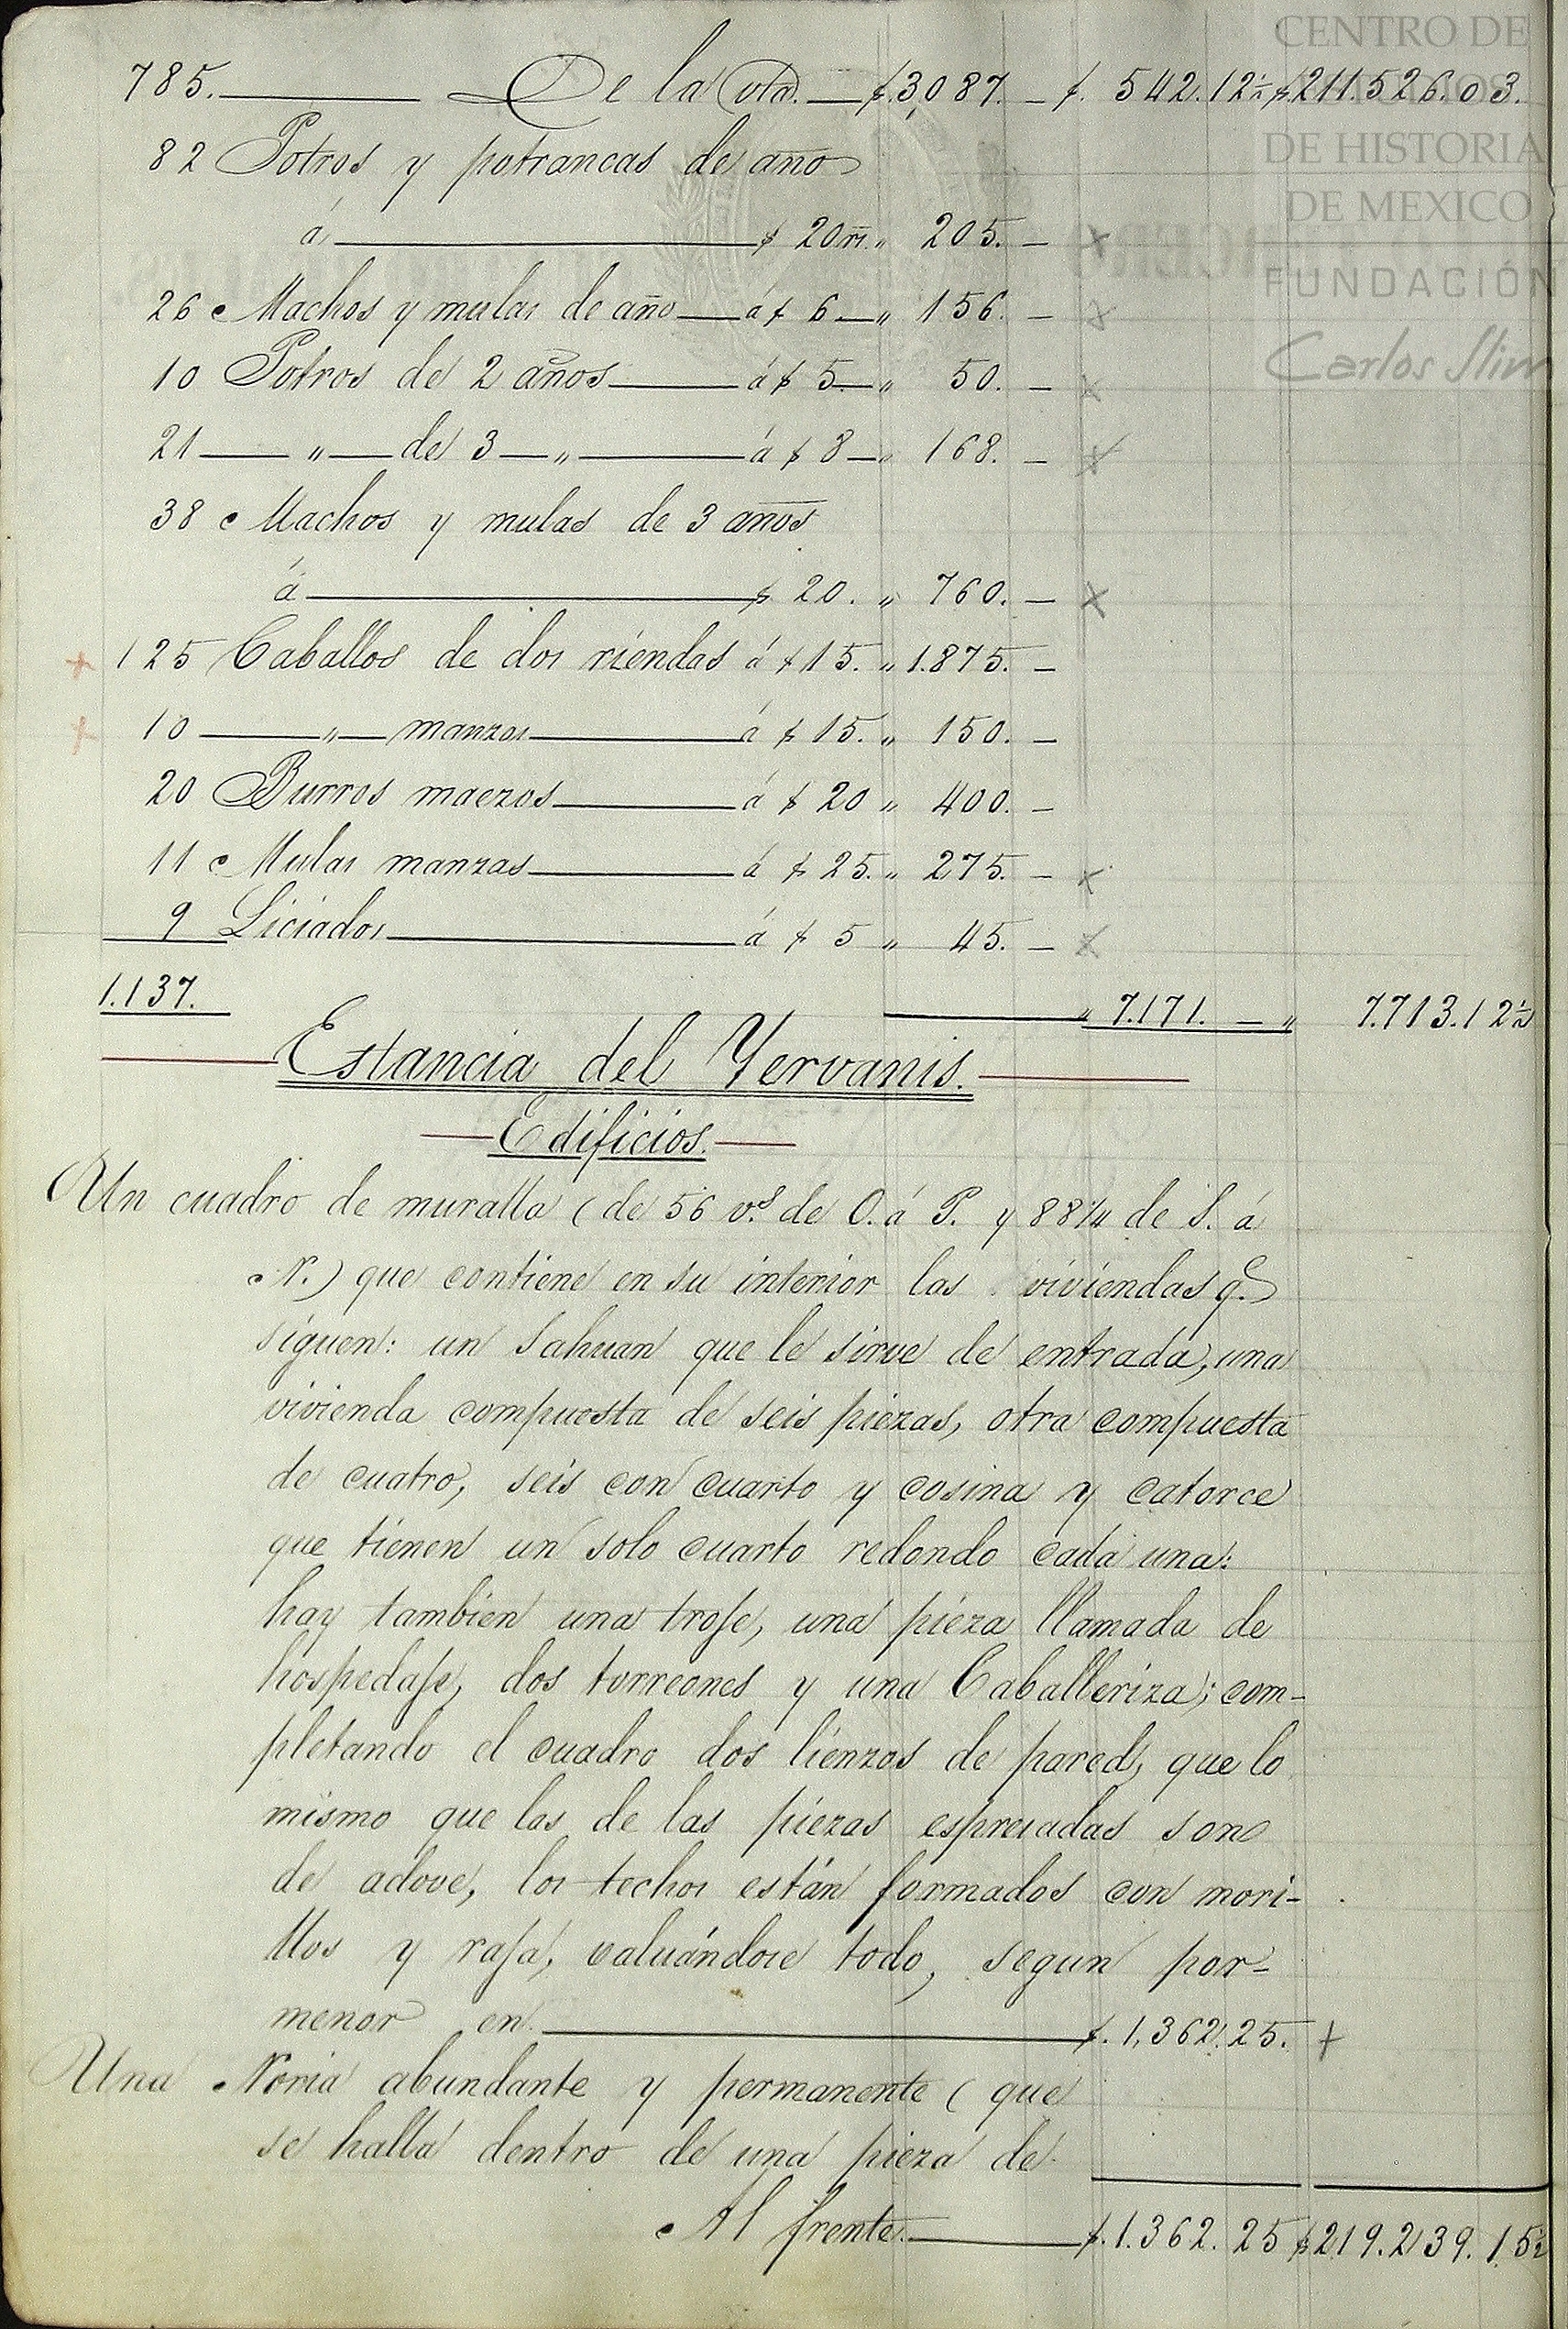 CENTRO DE
ESTUDIOS
DE HISTORIA
DE MEXICO
FUNDACIÓN
Carlos Slim
785. De la vta. $.3,087. — $. 542.12½ $.211.526.03.
82 Potros y potrancas de año
á $ 20 rs. „ 205. —
26 Machos y mulas de año á $ 6 — „ 156. —
10 Potros de 2 años á $ 5 — „ 50. —
21 — „ — de 3 — „ — á $ 8 — „ 168. —
38 Machos y mulas de 3 años
á $ 20. „ 760. —
125 Caballos de dos riendas á $ 15. „ 1.875. —
10 — „ — manzos á $ 15. „ 150. —
20 Burros maezos á $ 20 „ 400. —
11 Mulas manzas á $ 25. „ 275. —
9 Liciados á $ 5 „ 45. —
1.137. „ 7.171. — „ 7.713.12½
Estancia del Yervanis.
Edificios.
Un cuadro de muralla (de 56 v.s de O. á P. y 88¼ de S. á
N.) que contiene en su interior las viviendas q.e
siguen: un sahuan que le sirve de entrada, una
vivienda compuesta de seis piezas, otra compuesta
de cuatro, seis con cuarto y cosina y catorce
que tienen un solo cuarto redondo cada una:
hay tambien una troje, una pieza llamada de
hospedaje, dos torreones y una Caballeriza; com-
pletando el cuadro dos lienzos de pared, que lo
mismo que las de las piezas espresadas son
de adove, los techos están formados con mori-
llos y raja, valuándose todo, segun por-
menor en $. 1,362.25.
Una Noria abundante y permanente (que
se halla dentro de una pieza de
Al frente $. 1.362.25 $219.239.15½